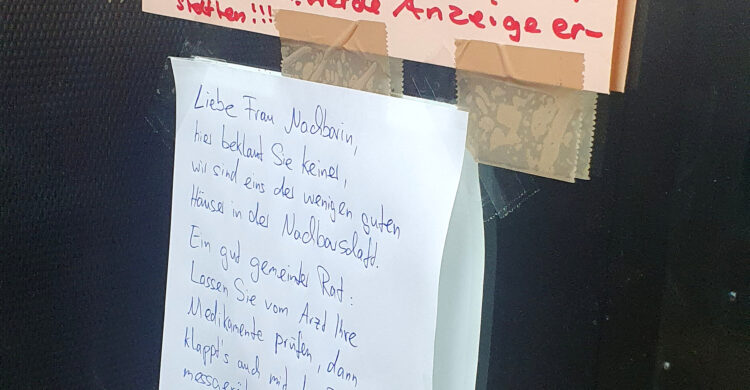 werde Anzeige er-
statten!!!
Liebe Frau Nachbarin,
hier beklaut Sie keiner,
wir sind eins der wenigen guten
Häuser in der Nachbarschaft.
Ein gut gemeinter Rat:
Lassen Sie vom Arzt Ihre
Medikamente prüfen, dann
klappt's auch mit